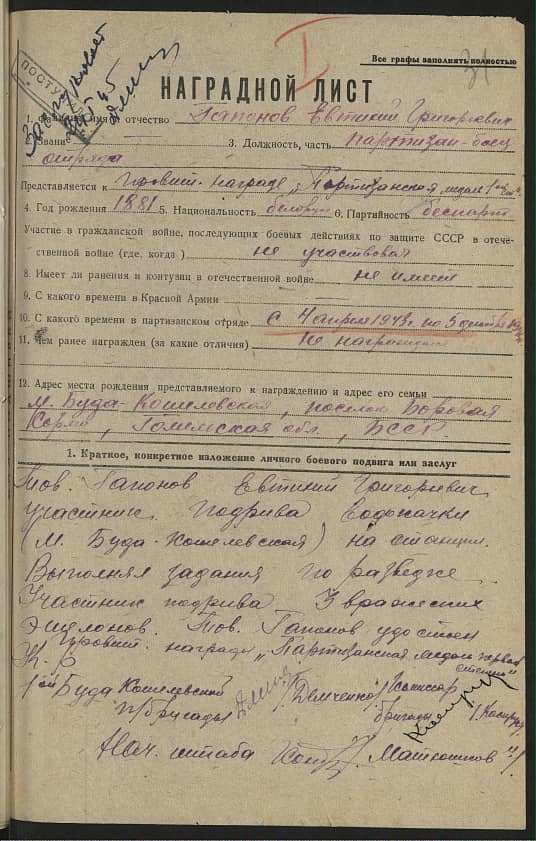 Все графы заполнять полностью
31
I
ПОСТУП
НАГРАДНОЙ ЛИСТ
1. Фамилия имя и отчество Гапонов Евтихий Григорьевич
2. Звание 3. Должность, часть партизан-боец
отряда
Представляется к правит. награде „Партизанская медаль 1
4. Год рождения 1881 5. Национальность белорус 6. Партийность беспарт
Участие в гражданской войне, последующих боевых действиях по защите СССР в отече-
ственной войне (где, когда) не участвовал
8. Имеет ли ранения и контузии в отечественной войне не имеет
9. С какого времени в Красной Армии
10. С какого времени в партизанском отряде с 4 апреля 1943г. по 5
11. Чем ранее награжден (за какие отличия) не награждался
12. Адрес места рождения представляемого к награждению и адрес его семьи
м. Буда-Кошелевской, поселок Боровая
Корма, Гомельская обл, БССР.
1. Краткое, конкретное изложение личного боевого подвига или заслуг
Тов. Гапонов Евтихий Григорьевич
участник подрыва водокачки
(м. Буда-Кошелевская) на станции.
Выполнял задания по разведке
Участник подрыва 3 вражеских
эшелонов. Тов. Гапонов удостоен
правит. награды „Партизанская медаль первой
степени"
К-р
1ой Буда Кошелевской /Демченко/ Комиссар
п/бригады бригады
Нач. штаба